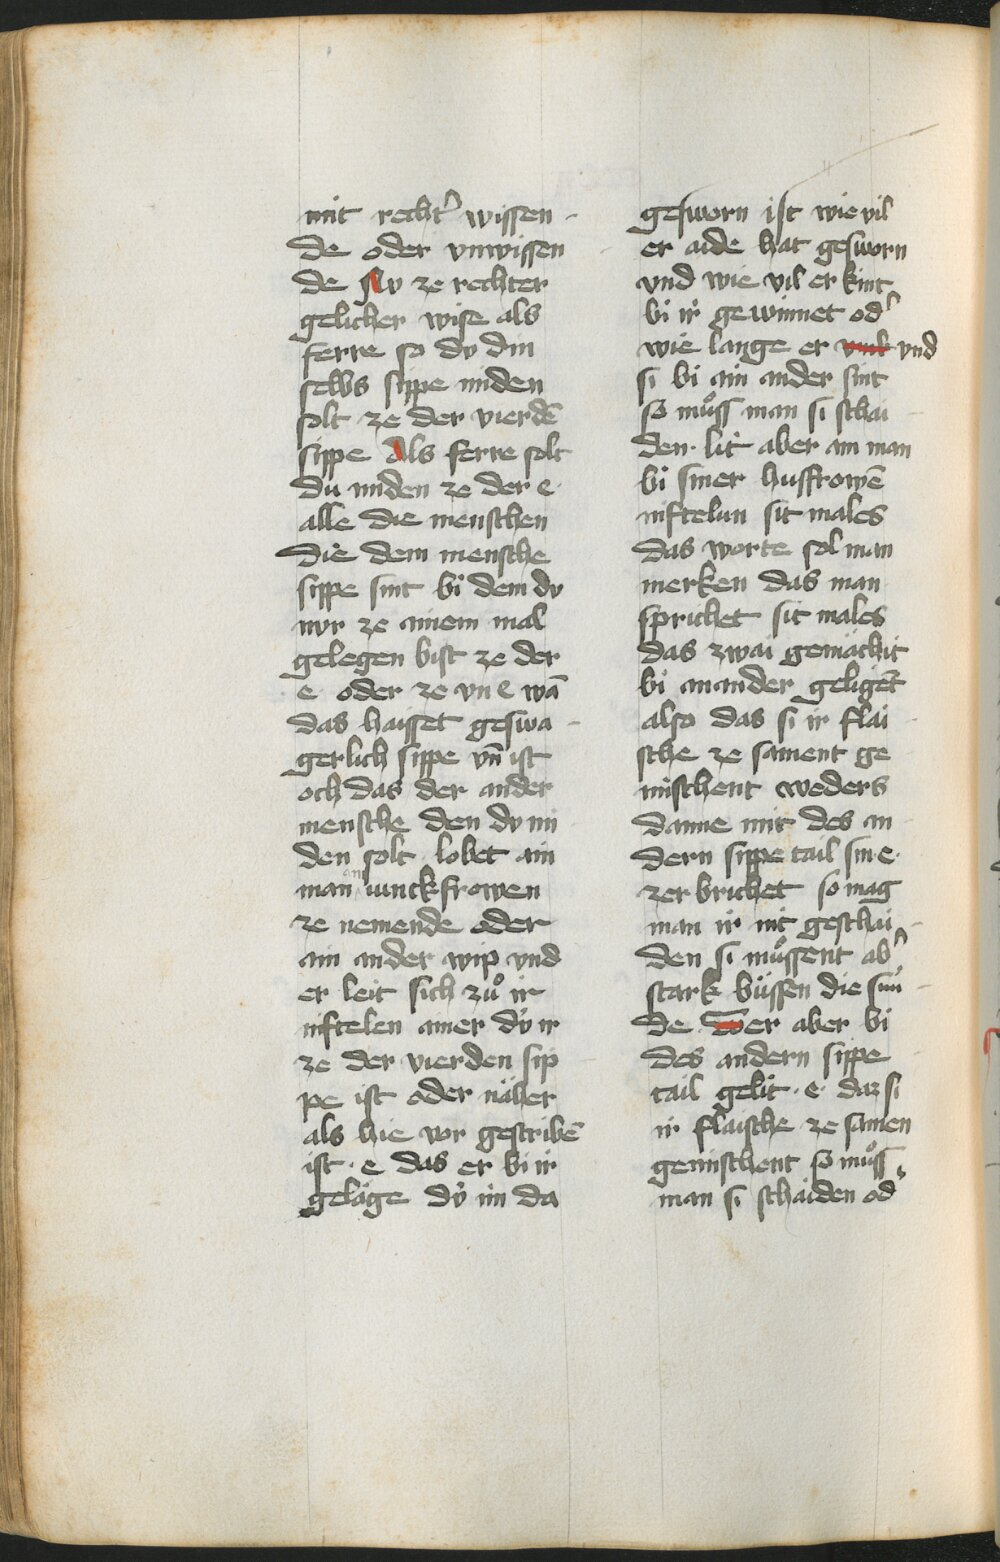 mit recht' wissen-
de oder vnwissen
de Nv ze rechter
gelicher wise als
ferre so dv din
selbs sippe miden
solt ze der vierdē
sippe Als ferre solt
du miden ze der e·
alle die menschen
die dem mensche
sippe sint bi dem dv
nvr ze ainem mal
gelegen bist ze der
e· oder ze vn e wā
das haisset geswa-
gerlich sippe vn̄ ist
och das der ander
mensche den dv mi
den solt · lobet ain
man ain iunckfrowen
ze nemende oder
ain ander wip vnd
er leit sich zuͦ ir
niftelen ainer dv̍ ir
ze der vierden sip
pe ist oder näher
als hie vor gestribē
ist · e das er bi ir
geläge dv̍ im da
gesworn ist wie vil
er aide hat gesworn
vnd wie vil er kint
bi ir gewinnet od'
wie lange er vnd
si bi ain ander sint
so muͦss man si schai
den · lit aber ain man
bi siner husfrowē
niftelun sit males
das worte sol man
merken das man
sprichet sit males
das zwai gemächit
bi anander geligēt
also das si ir flai-
sche ze sament ge
mischent weders
danne mit des an
dern sippe tail sin e·
zerbrichet so mag
man ir nit geschai-
den si muͦssent ab'
stark büssen die sün-
de Wer aber bi
des andern sippe
tail gelit · e· daz si
ir flaische ze samen
gemischent so muͦss
man si schaiden od'